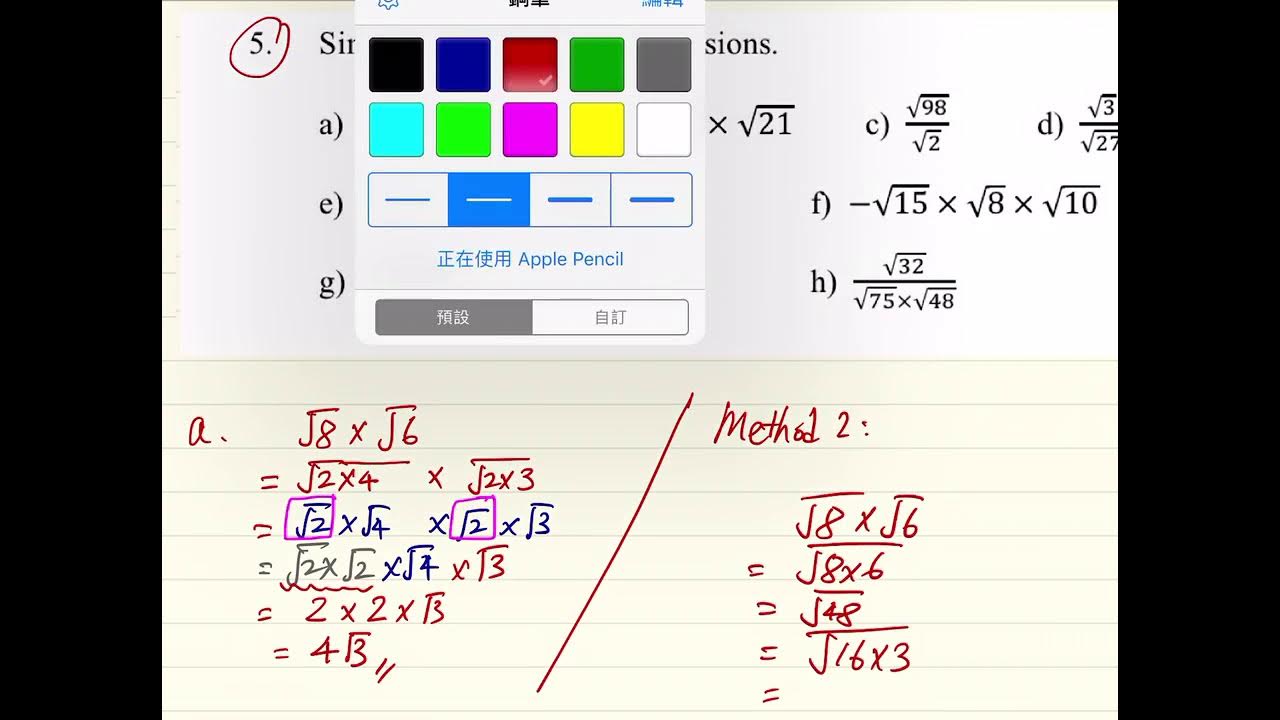 鋼筆 編輯
5. Sir sions.
a) × √21 c) √98/√2 d) √3/√27
e) f) −√15 × √8 × √10
正在使用 Apple Pencil
g) h) √32/(√75×√48)
預設 自訂
a. √8 × √6
= √2×4 × √2×3
= √2 × √4 × √2 × √3
= √2×√2 × √4 × √3
= 2 × 2 × √3
= 4√3 //
Method 2:
√8 × √6
= √8×6
= √48
= √16×3
=